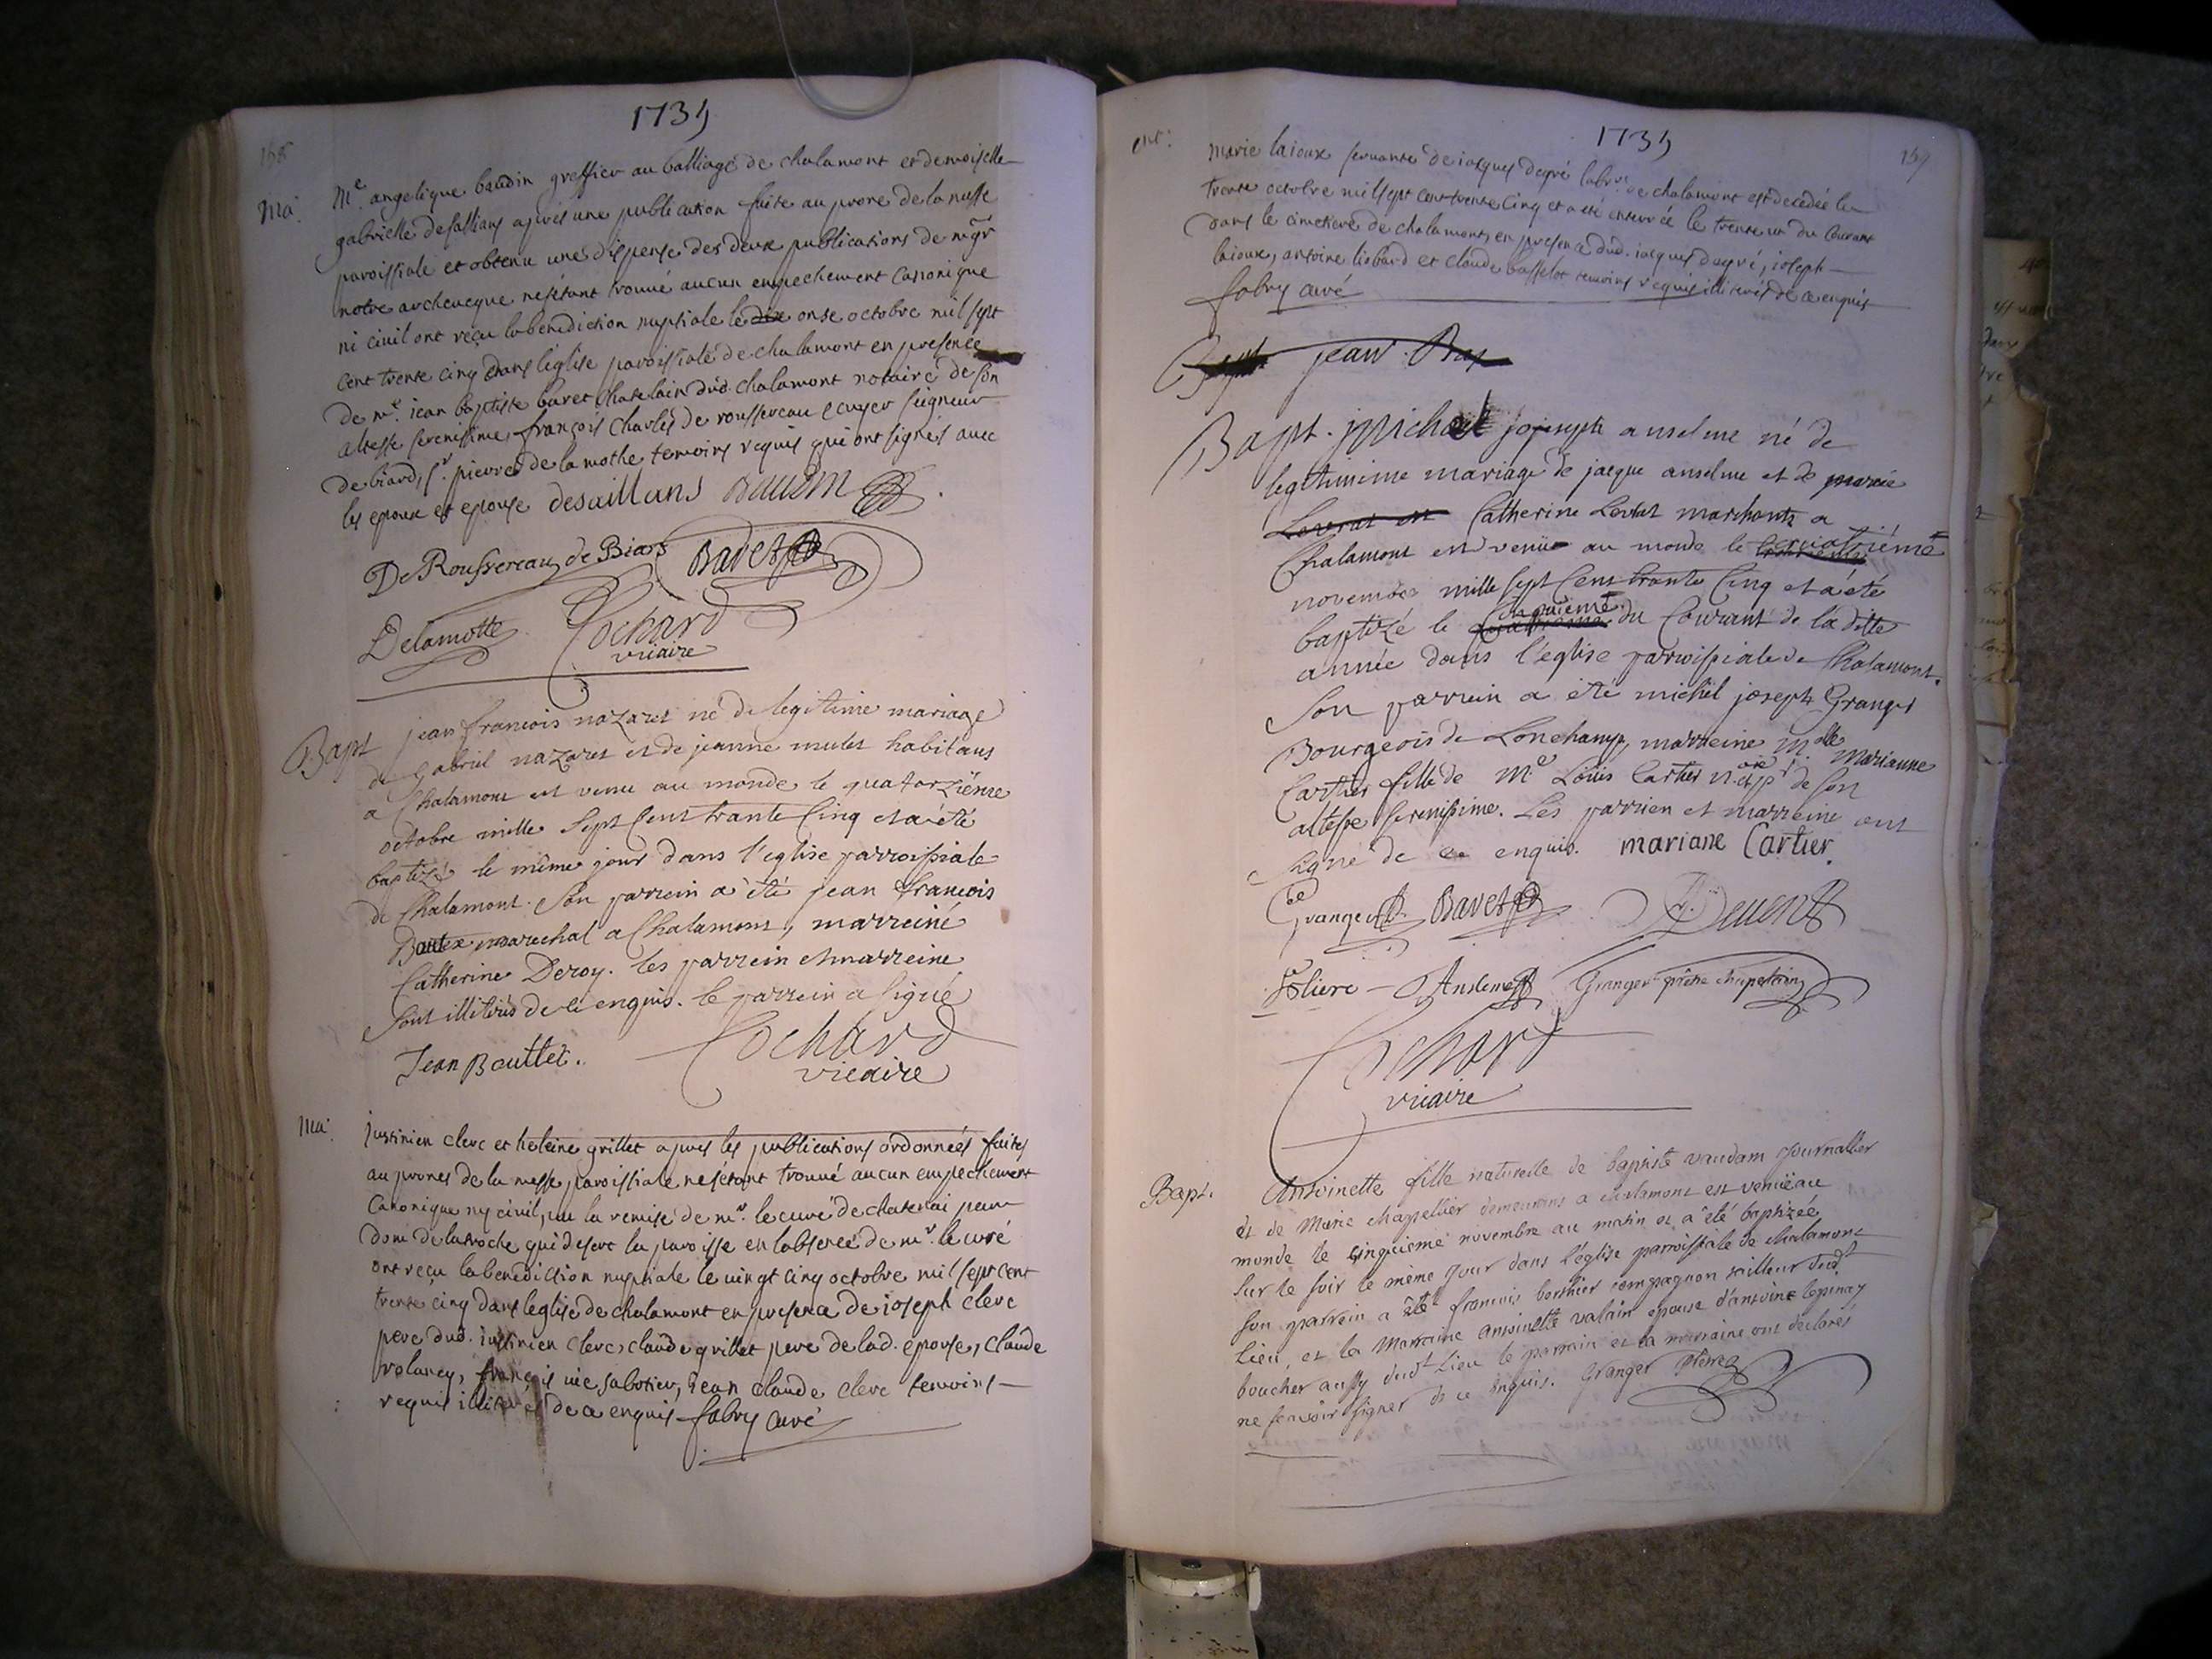 1735
Ma. Me. angelique baudin greffier au balliage de chalamont et demoiselle
gabrielle desallians apres une publication faite au prone de la messe
paroissiale et obtenu une dispense des deux publications de mgr
notre archeveque nesétant trouvé aucun empechement canonique
ni civil ont reçu la benediction nuptiale le dix onse octobre mil sept
cent trente cinq dans l'église paroissiale de chalamont en presence
de me. iean baptiste baret chatelain dud. chalamont notaire de son
altesse serenissime, françois charles de roussereau ecuyer seigneur
de biard, sr. pierre de la mothe temoins requis qui ont signés avec
les epoux et epouse desaillans Baudin
De Roussereau de Biars Baret
Delamotte Cochard
vicaire
Bapt jean francois nazaret né de legitime mariage
de gabriel nazaret et de jeanne mulet habitans
a Chalamont est venu au monde le quatorziéme
octobre mille sept cent trante cinq et a été
baptizé le même jour dans l'eglise parroissiale
de Chalamont. Son parrein a été jean francois
marechal a Chalamont, marreine
Catherine Deroy. les parrein et marreine
sont illitérés de ce enquis. le parrein a signé
Jean Bouttet. Cochard
vicaire
Ma. justinien clerc et heleine grillet apres les publications ordonnées faites
au prones de la messe paroissiale nesétant trouvé aucun empechement
canonique ny civil, vu la remise de mr. le curé de chatenai par
dom de laroche qui desert la paroisse en l'absence de mr. le curé
ont reçu la benediction nuptiale le vingt cinq octobre mil sept cent
trente cinq dans leglise de chalamont en presence de ioseph clerc
pere dud. iustinien clerc, claude grillet pere de lad. epouse, claude
volancy, françois sabotier, iean claude clerc temoins
requis illiterés de ce enquis fabry curé
1735
157
Marie laioux servante de iacques dupré labr. de chalamont est decedée le
trente octobre mil sept cent trente cinq et a eté enterrée le trente un du courant
dans le cimetiere de chalamont, en presence dud. iacques dupré, ioseph
laioux, antoine liobard et claude basselot temoins requis illiterés de ce enquis
fabry curé
Bapt. jean
Bapt. Michel jojseph anselme né de
legitimime mariage de jacque anselme et de marie
Levrat et Catherine Levrat marchants a
Chalamont est venu au monde le quatriéme
novembre mille sept cent trante cinq et a été
baptizé le cinquiéme du courant de la ditte
année dans l'eglise parroissiale de Chalamont.
Son parrein a été michel joseph Granger
Bourgeois de Lonchamp, marreine Mdlle Marianne
Cartier fille de Me Louis Cartier de son
altesse serenissime. Les parrien et marreine ont
signé de ce enquis. mariane Cartier.
Granger Baret
Anslme Granger prêtre chapelain
Cochard
vicaire
Bapt. Antoinette fille naturelle de baptiste vaudam journallier
et de Marie chapellier demeurans a chalamont est venüe au
monde le cinquieme novembre au matin et a été baptizée
sur le soir le même jour dans l'église parroissiale de chalamont
son parrain a été francois berthier compagnon tailleur dudt
lieu, et la Marraine antoinette valain epouse d'antoine lepinay
boucher aussy dudt Lieu le parrain et la marraine ont déclarés
ne scavoir signer de ce Enquis. Granger prêtre